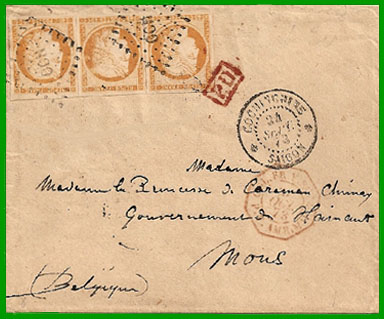 PD
COCHINCHINE
SAIGON
Madame
Madame la Princesse de Caraman Chimay
Gouvernement de Hainaut
Mons
Belgique